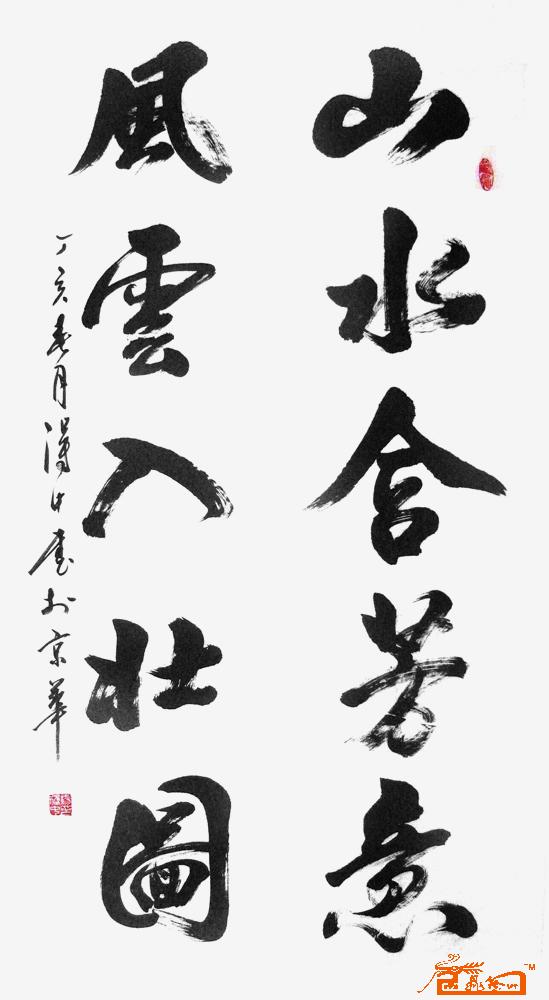 山水含芳意
風雲入壯圖
丁亥春月
書於京華